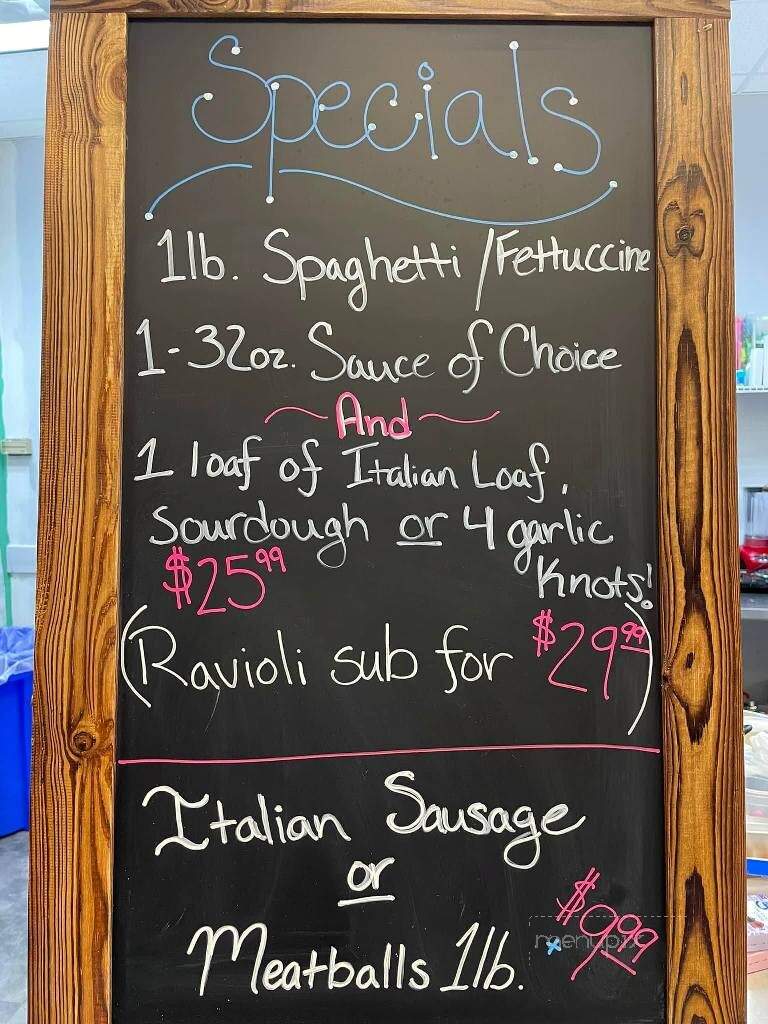 Specials
1lb. Spaghetti / Fettuccine
1-32oz. Sauce of Choice
And
1 loaf of Italian Loaf,
Sourdough or 4 garlic
Knots!
$25.99
(Ravioli sub for $29.99)
Italian Sausage
or
Meatballs 1lb. $9.99
menupix